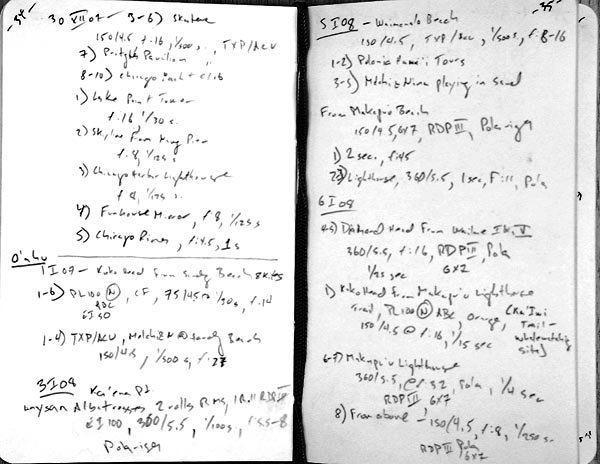 34
30 XII 07 - 3-6) Skyline
150/4.5 f:16, 1/500s., TXP/ACU
7) Pavilion "
8-10) Chicago Yacht Club
1) Lake Point Tower
f:16 1/30 s.
2) Skyline From Navy Pier
f:8, 1/125 s
3) Chicago Harbor Lighthouse
f:8, 1/125 s
4) Funhouse Mirror, f:8, 1/125 s
5) Chicago River, f:4.5, 1s
O'ahu
1 I 07 - Koko Head From Sandy Beach
1-6) PL100 (N), CF, 75/4.5 @ 1/30s,
ABC
EI 50
1-4) TXP/ACU, @ Sandy Beach
150/4.5, 1/500 s,
3 I 08 Ka'ena Pt
Laysan Albatrosses 2 rolls
EI 100, 360/5.5, 1/100s, f:5.5-8
Polariza
35
5 I 08 - Waimanalo Beach
150/4.5, TXP/ACU, 1/500s, f:8-16
1-2) Tours
3-5) playing in Sand
From Makapu'u Beach
150/4.5, 6x7, RDP III, Polariza
1) 2 sec., f:45
2-3) Lighthouse, 360/5.5, 1 sec, F:11, Pola
6 I 08
4-5) Diamond Head From
360/5.5, f:16, RDP III, Pola
1/25 sec 6x7
1) Koko Head From Makapu'u Lighthouse
Trail, PL100 (N) ABC, Orange, (Ka'Iwi
150/4.5 @ f:16, 1/15 sec Trail -
whalewatching
site)
6-7) Makapu'u Lighthouse
360/5.5, @ f:32, Pola, 1/4 sec
RDP III 6x7
8) From above - 150/4.5, f:8, 1/250 s.
RDP III Pola
6x7